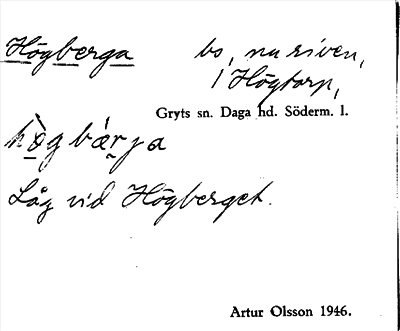 Högberga bs, nu riven,
/ Högtorp,
Gryts sn. Daga hd. Söderm. l.
hò̱g bá̱r̤ja
Låg vid Högberget.
Artur Olsson 1946.